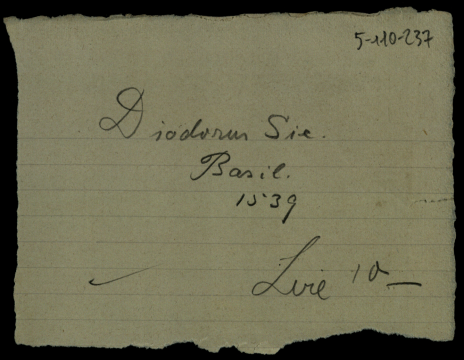 5-110-237
Diodorus Sic.
Basil.
1539
Lire 10—